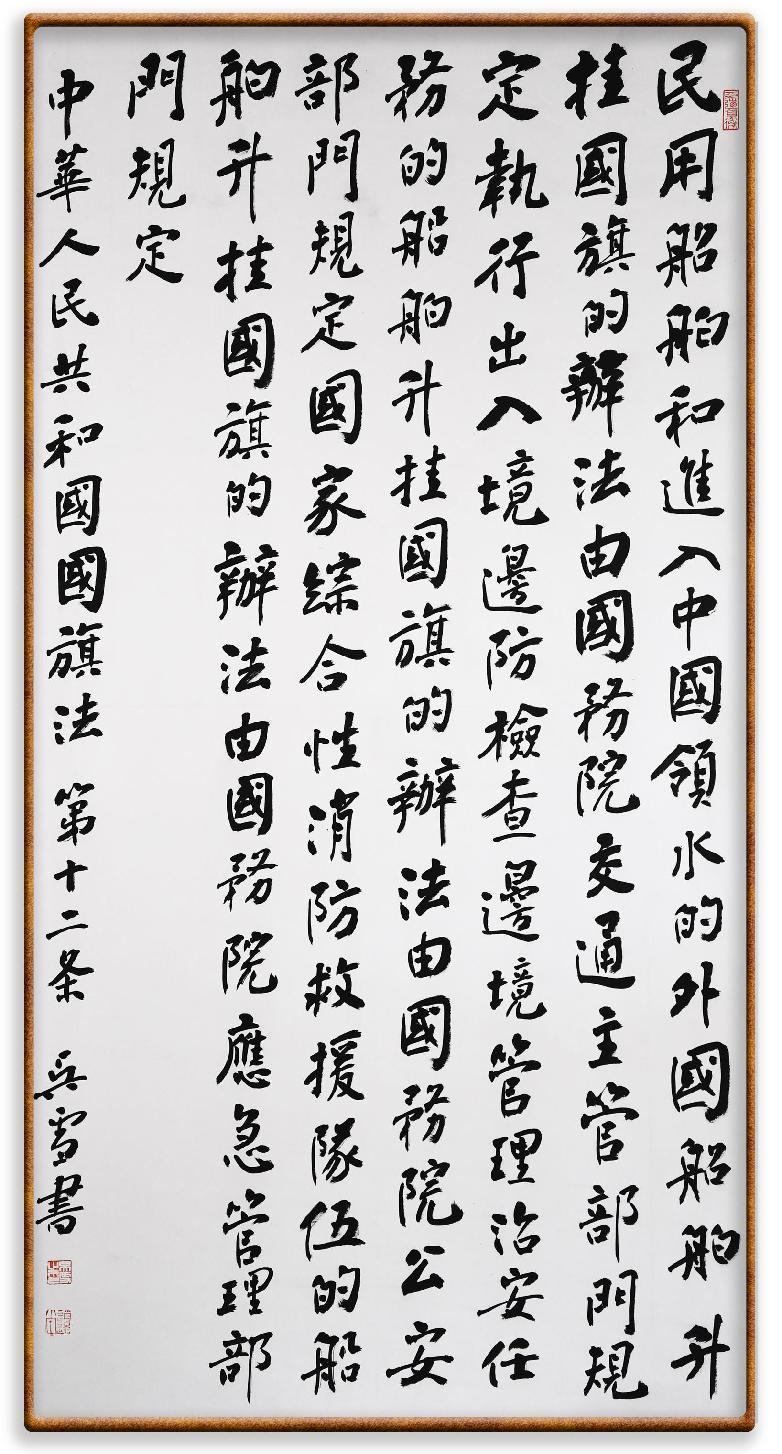 民用船舶和進入中國領水的外國船舶升
挂國旗的辦法由國務院交通主管部門規
定執行出入境邊防檢查邊境管理治安任
務的船舶升挂國旗的辦法由國務院公安
部門規定國家綜合性消防救援隊伍的船
舶升挂國旗的辦法由國務院應急管理部
門規定
中華人民共和國國旗法 第十二条 吳雪書